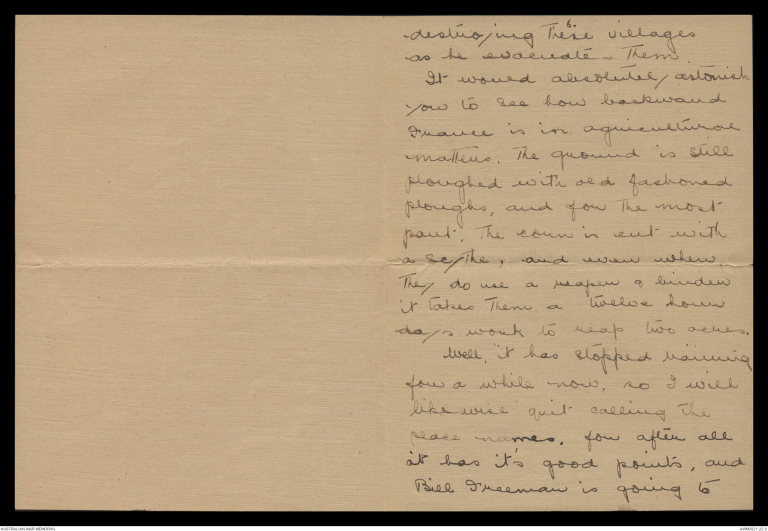 6.
destroying these villages
as he evacuates them.
It would absolutely astonish
you to see how backward
France is in agricultural
matters. The ground is still
ploughed with old fashioned
ploughs, and for the most
part. The corn is cut with
a scythe, and even when
they do use a reaper & binder
it takes them a twelve hour
days work to reap two acres.
Well, it has stopped raining
for a while now, so I will
likewise quit calling the
place names, for after all
it has it's good points, and
Bill Freeman is going to
AUSTRALIAN WAR MEMORIAL